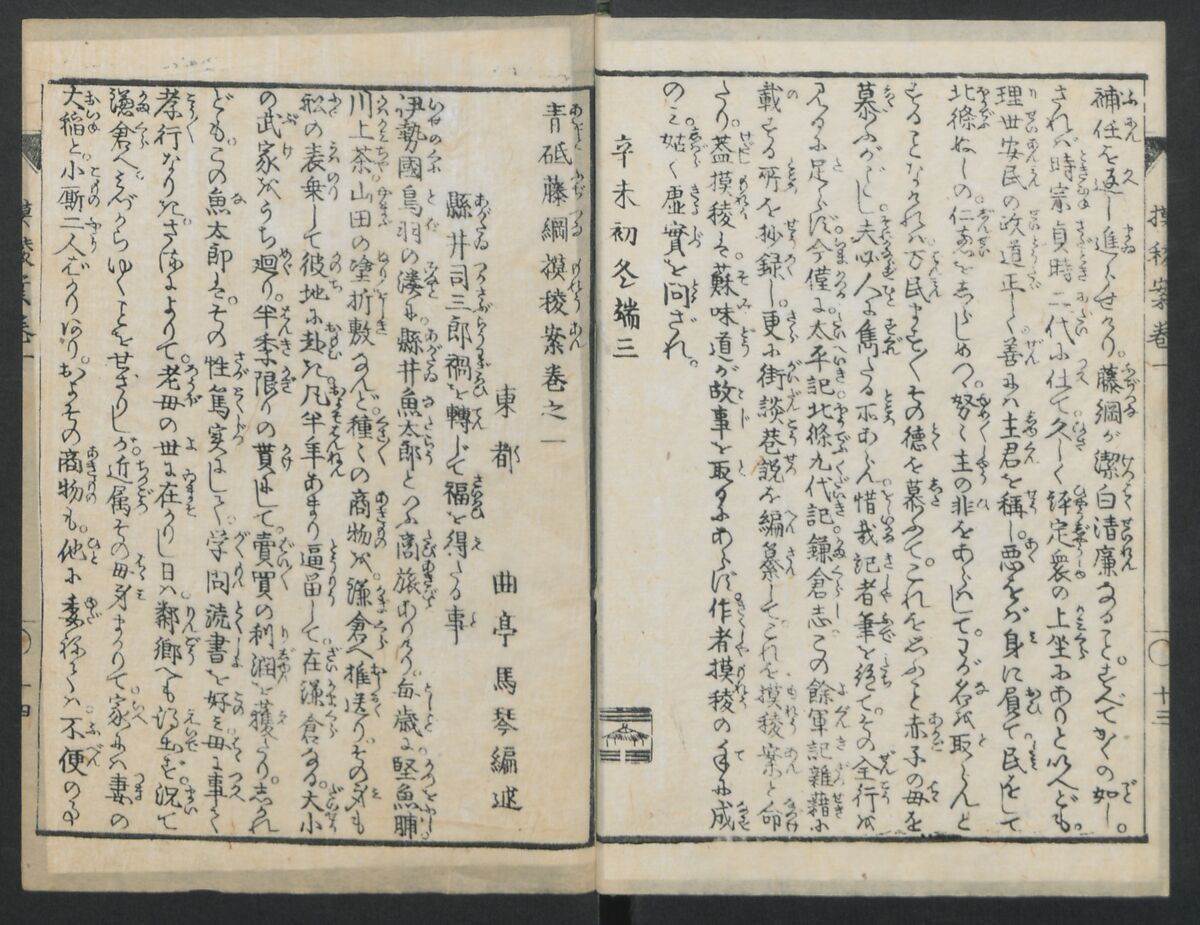 補任を返し進らせけり。藤綱が潔白清廉なること。すべてかくの如し。
されば時宗貞時二代に仕て久しく評定衆の上坐にありと以へども。
理世安民の政道正しく善には主君を稱し。悪をば身に屓て民をして
北條ぬしの仁恵をしらしめつ。努々主の非をあらはしてわが名を取らんと
することなければ万民ます〳〵その徳を慕ふて。これを思ふこと赤子の母を
慕ふがごとし。夫必人に雋たる所あらん惜哉記者筆を絶てその全行を
見るに足らず。今僅に太平記北條九代記鎌倉志この餘軍記雜藉に
載する所を抄録し。更に街談巷説を編纂してこれを摸稜案と命
たり。蓋摸稜は蘇味道が故事を取るにあらず。作者摸稜の手に成
のみ。姑く虚實を問ざれ。
辛未初冬端三
摸稜案卷一
十三
青砥藤綱摸稜案卷之一
東都 曲亭馬琴編述
縣井司三郎禍を轉じて福を得たる事
伊勢國鳥羽の湊に縣井魚太郎といふ商旅ありけり。毎歳に堅魚脯
川上茶山田の塗折敷なんど種々の商物を。鎌倉へ推送り。その身も
舩の表乗して彼地に赴き。凡半年あまり逗留して在鎌倉なる。大小
の武家をうち廻り。半季限りの貰にして賣買の利潤を獲たり。しかれ
ども。この魚太郎は。その性篤実にして。学問読書を好み母に事て
孝行なりき。さるによりて。老母の世に在りし日は鄰郷へも泊らず。況て
鎌倉へみづからゆくことをせざりしが。近属その母身まかりて。家には妻の
大稲と。小厮二人ばかりなり。およその商物も。他に委ねては不便の事
摸稜案卷一
十四